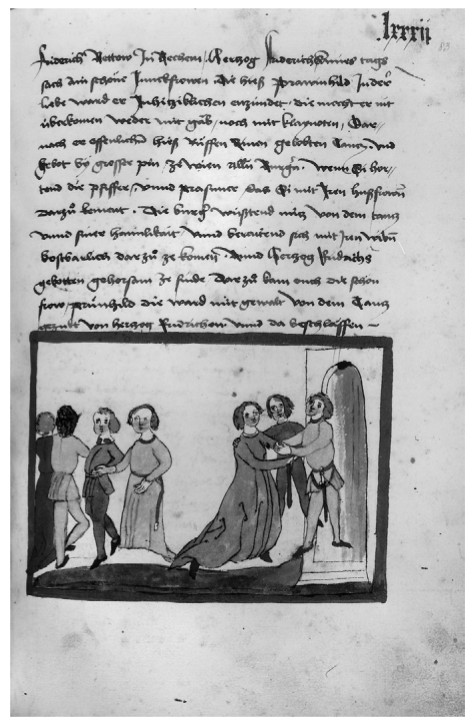 lxxxii
Friderich Rettow In Rechem / Herzog Friderich eines tags
sach ain schöne Junckfrowen die hieß prawnhild In der
liebe ward er Inhiziklichen enzündet . die mocht er nit
überkomen weder mit gab / noch mit klaynoten / Dar
nach er offenlichen hieß rüffen ainen gebotten tancz / vnd
gebot by grosser pen / ze wien allen Wenn si hor
tend die pfiffer / vnnd das si mit Iren hußfrowen
darzů kement . Die burger wisstend nütz von dem tantz
vnnd siner haimlikait vnnd beraitend sich mit Iren
kostbarlich dar zů ze komen vnnd Herzog fridrichs
gebotten gehorsam ze sinde Dar zů kam ouch die schön
frow prünhild die ward mit gewalt von dem tantz
von herzog fridrichen vnnd da beschlaffen